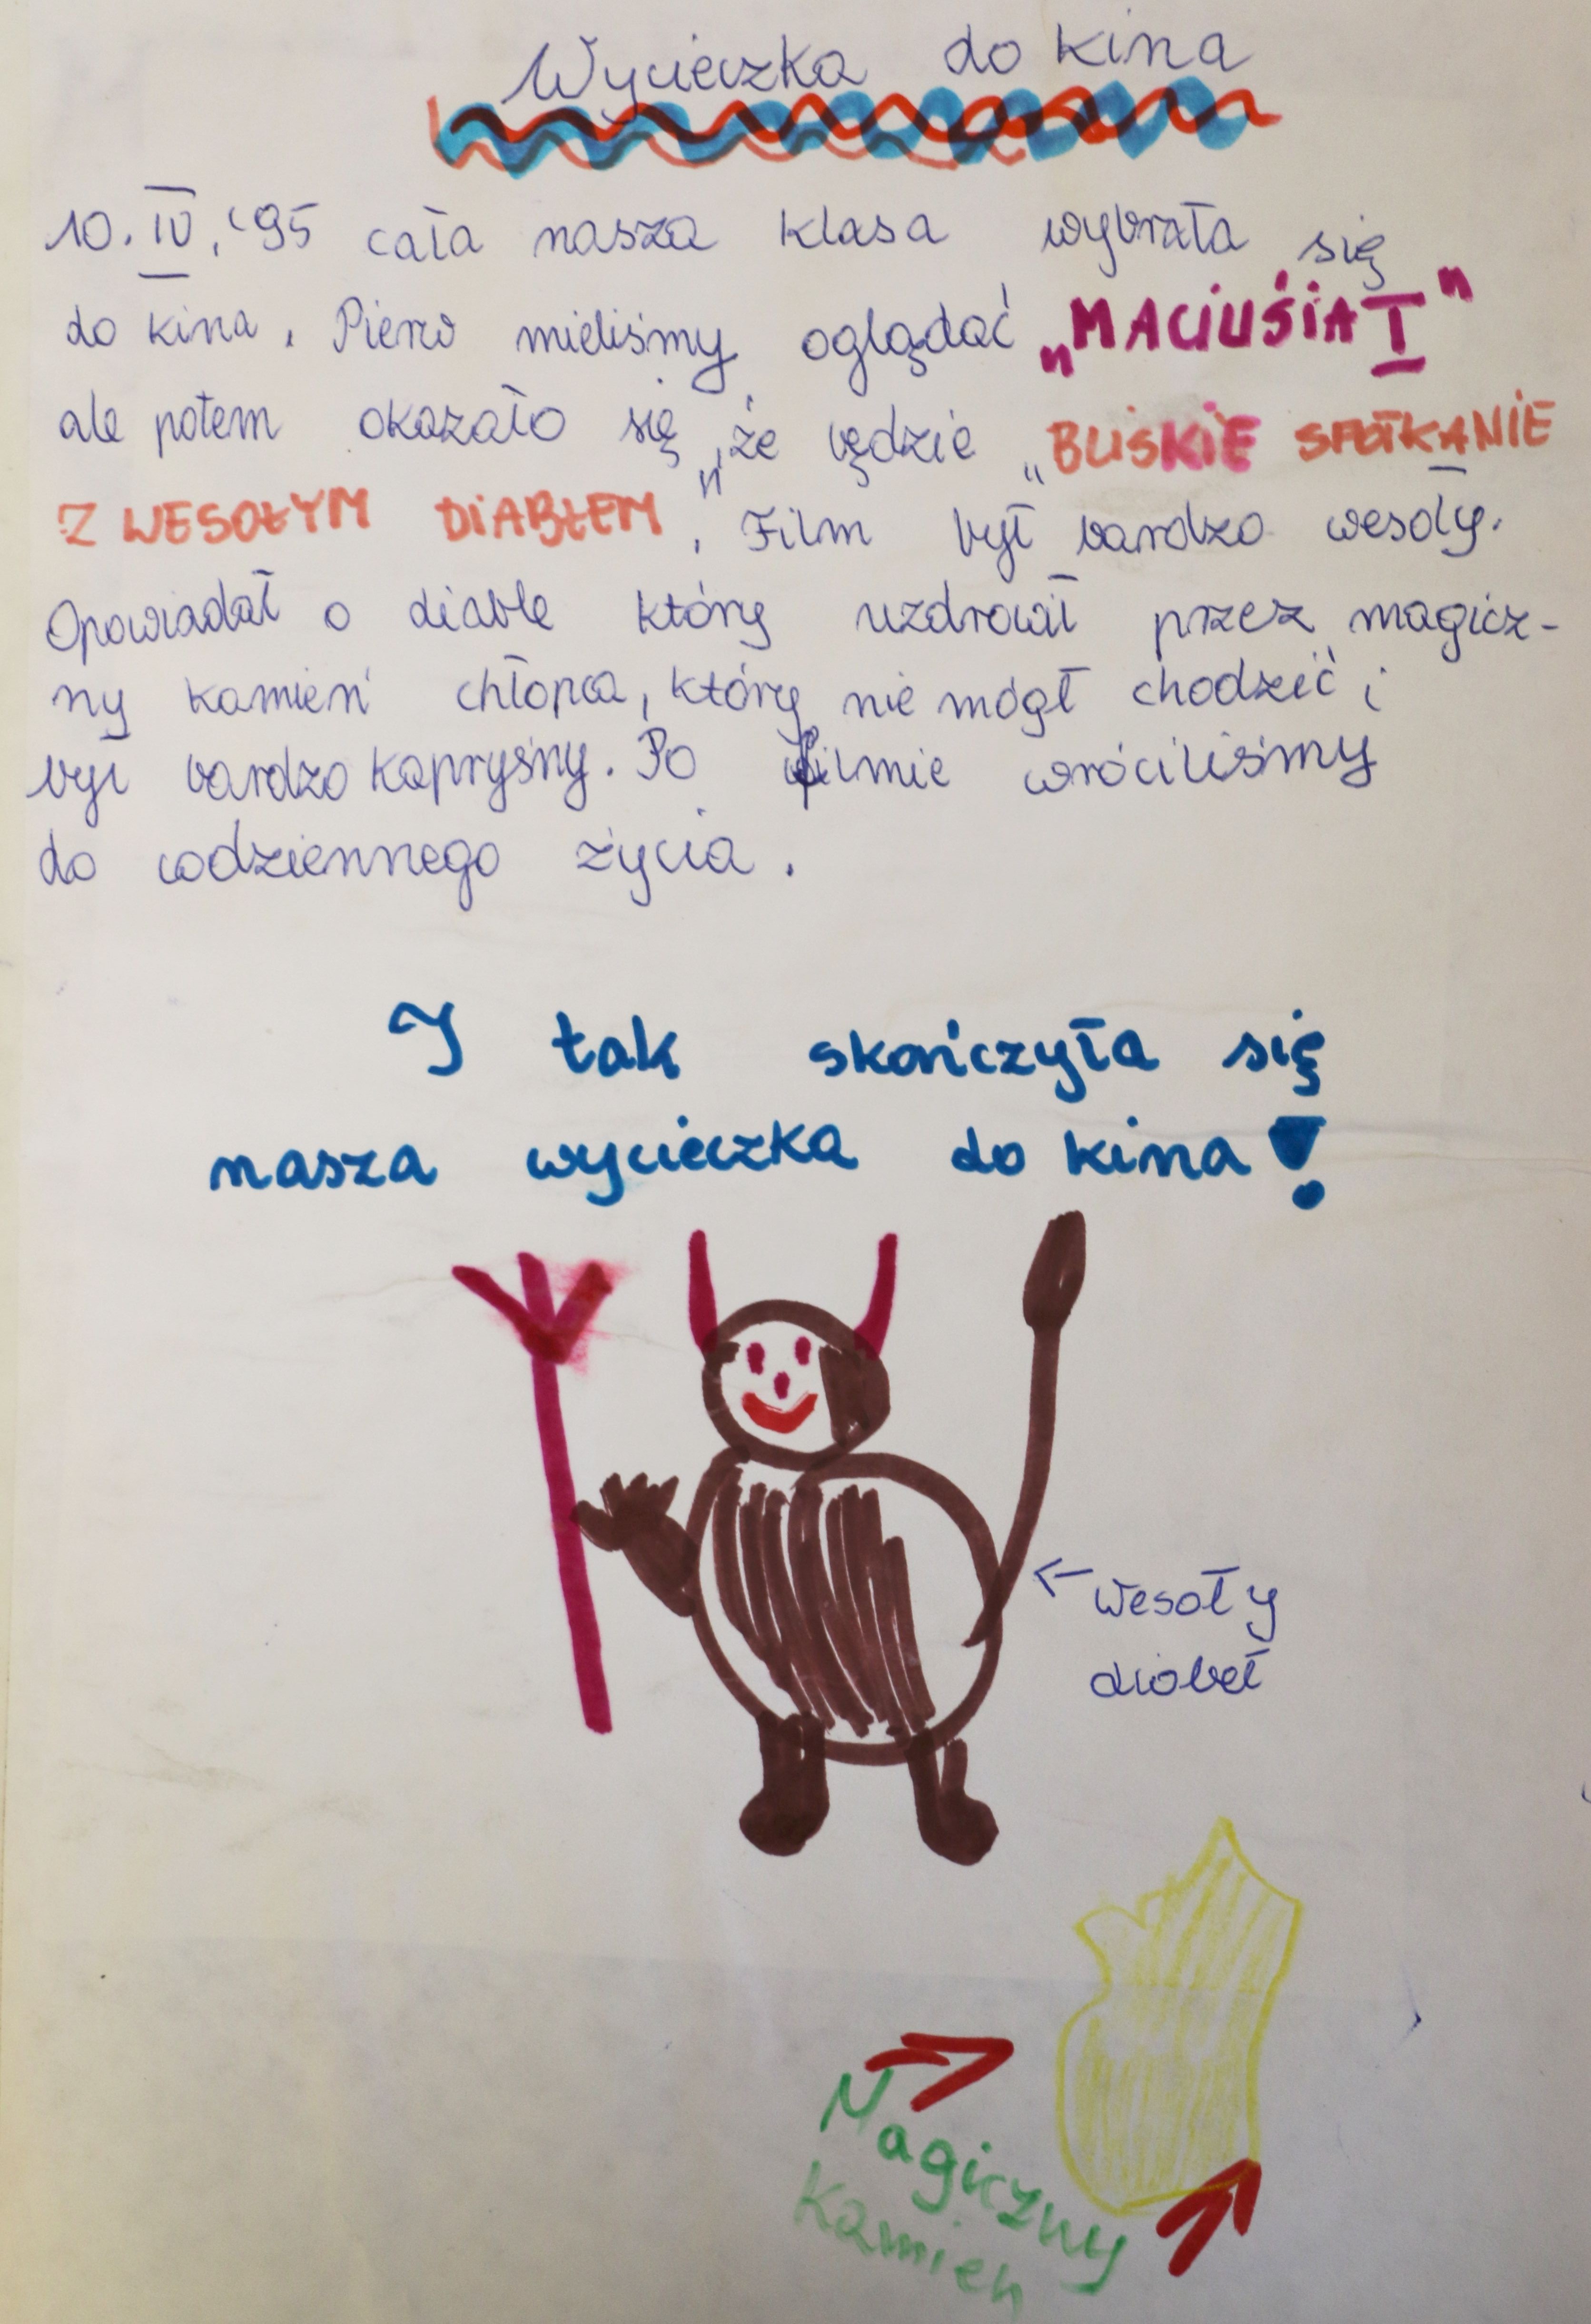 Wycieczka do kina
10. IV. '95 cała nasza klasa wybrała się
do kina. Pierw mieliśmy oglądać „MACIUSIA I"
ale potem okazało się, że będzie „BLISKIE SPOTKANIE
Z WESOŁYM DIABŁEM". Film był bardzo wesoły.
Opowiadał o diable który uzdrowił przez magicz-
ny kamień chłopca, który nie mógł chodzić i
był bardzo kapryśny. Po filmie wróciliśmy
do codziennego życia.
I tak skończyła się
nasza wycieczka do kina!
← Wesoły
diabeł
Magiczny
Kamień